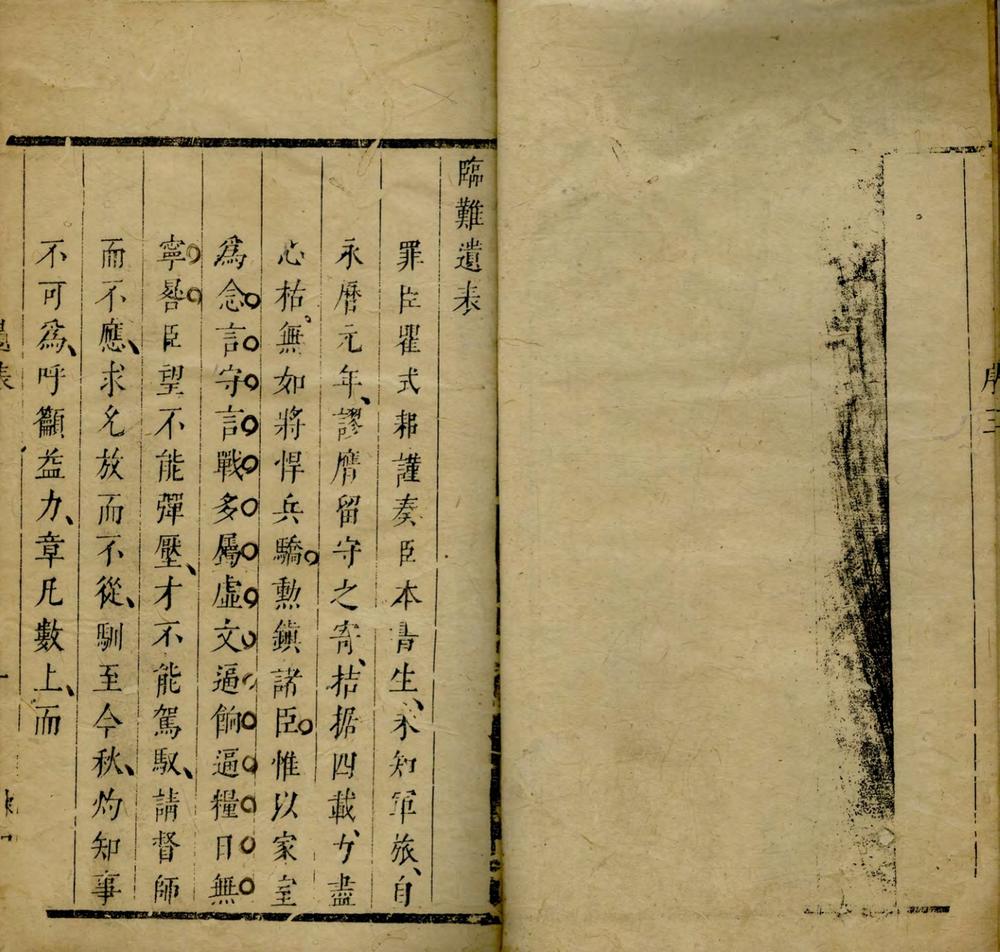 臨難遺表
罪臣瞿式耜謹奏臣本書生、未知軍旅、自
永曆元年、謬膺留守之寄、拮据四載、力盡
心枯、無如將悍兵驕。勳鎮諸臣。惟以家室
為念言守言戰多屬虛文逼餉逼糧日無
寧晷臣望不能彈壓、才不能駕馭、請督師
而不應、求允放而不從、馴至今秋、灼知事
不可為、呼籲益力、章凡數上、而